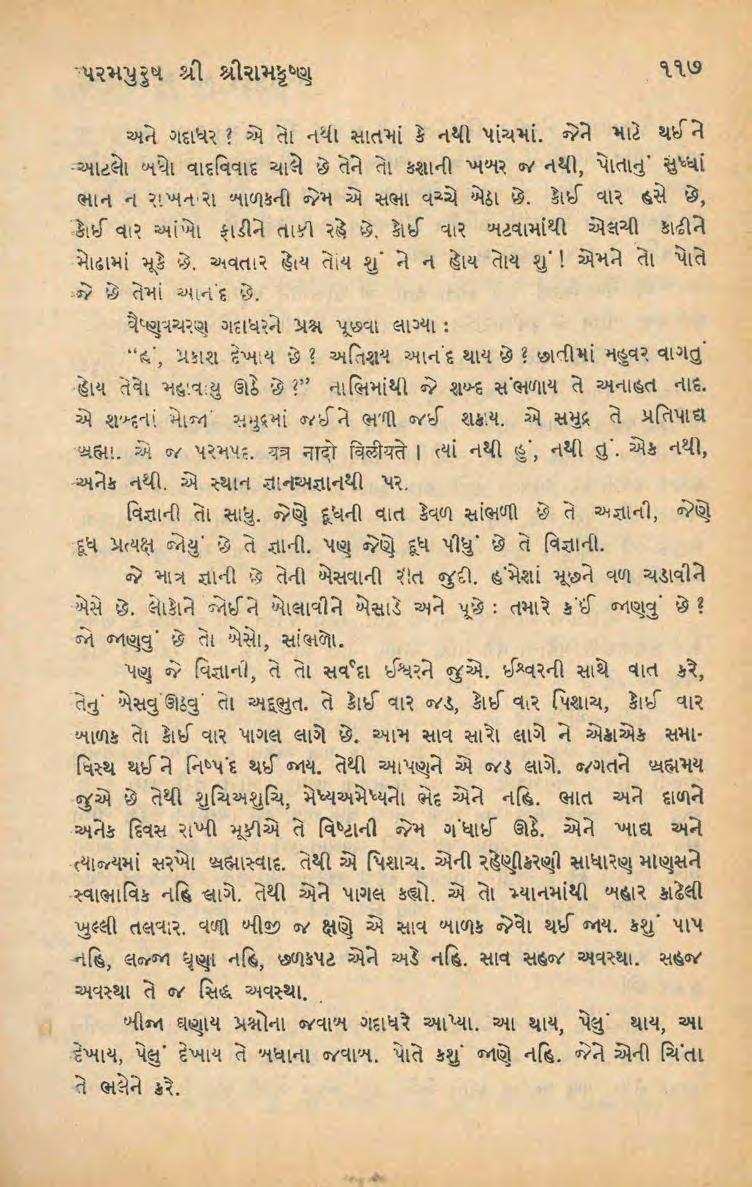 પરમપુરુષ શ્રી શ્રીરામકૃષ્ણ
૧૧૭
અને ગદાધર ? એ તો નથી સાતમાં કે નથી પાંચમાં. જેને માટે થઈને
આટલો બધો વાદવિવાદ ચાલે છે તેને તો કશાની ખબર જ નથી, પોતાનું સુધ્ધાં
ભાન ન રાખનારા બાળકની જેમ એ સભા વચ્ચે બેઠા છે. કોઈ વાર હસે છે,
કોઈ વાર આંખો ફાડીને તાકી રહે છે. કોઈ વાર બટવામાંથી એલચી કાઢીને
મોઢામાં મૂકે છે. અવતાર હોય તોય શું ને ન હોય તોય શું ! એમને તો પોતે
જે છે તેમાં આનંદ છે.
વૈષ્ણવચરણ ગદાધરને પ્રશ્ન પૂછવા લાગ્યા :
“હં, પ્રકાશ દેખાય છે ? અતિશય આનંદ થાય છે ? છાતીમાં મહુવર વાગતું
હોય તેવો મહાવાયુ ઊઠે છે ?” નાભિમાંથી જે શબ્દ સંભળાય તે અનાહત નાદ.
એ શબ્દનાં મોજાં સમુદ્રમાં જઈને ભળી જઈ શકાય. એ સમુદ્ર તે પ્રતિપાદ્ય
બ્રહ્મ. એ જ પરમપદ. यत्र नादो विलीयते । ત્યાં નથી હું, નથી તું. એક નથી,
અનેક નથી. એ સ્થાન જ્ઞાનઅજ્ઞાનથી પર.
વિજ્ઞાની તો સાધુ. જેણે દૂધની વાત કેવળ સાંભળી છે તે અજ્ઞાની, જેણે
દૂધ પ્રત્યક્ષ જોયું છે તે જ્ઞાની. પણ જેણે દૂધ પીધું છે તે વિજ્ઞાની.
જે માત્ર જ્ઞાની છે તેની બેસવાની રીત જુદી. હંમેશાં મૂછને વળ ચડાવીને
બેસે છે. લોકોને જોઈને બોલાવીને બેસાડે અને પૂછે : તમારે કંઈ જાણવું છે ?
જો જાણવું છે તો બેસો, સાંભળો.
પણ જે વિજ્ઞાની, તે તો સર્વદા ઈશ્વરને જુએ. ઈશ્વરની સાથે વાત કરે,
તેનું બેસવુંઊઠવું તો અદ્દભુત. તે કોઈ વાર જડ, કોઈ વાર પિશાચ, કોઈ વાર
બાળક તો કોઈ વાર પાગલ લાગે છે. આમ સાવ સારો લાગે ને એકાએક સમા-
ધિસ્થ થઈને નિષ્પંદ થઈ જાય. તેથી આપણને એ જડ લાગે. જગતને બ્રહ્મમય
જુએ છે તેથી શુચિઅશુચિ, મેધ્યઅમેધ્યનો ભેદ એને નહિ. ભાત અને દાળને
અનેક દિવસ રાખી મૂકીએ તે વિષ્ટાની જેમ ગંધાઈ ઊઠે. એને ખાદ્ય અને
ત્યાજ્યમાં સરખો બ્રહ્માસ્વાદ. તેથી એ પિશાચ. એની રહેણીકરણી સાધારણ માણસને
સ્વાભાવિક નહિ લાગે. તેથી એને પાગલ કહ્યો. એ તો મ્યાનમાંથી બહાર કાઢેલી
ખુલ્લી તલવાર. વળી બીજી જ ક્ષણે એ સાવ બાળક જેવો થઈ જાય. કશું પાપ
નહિ, લજ્જા ઘૃણા નહિ, છળકપટ એને અડે નહિ. સાવ સહજ અવસ્થા. સહજ
અવસ્થા તે જ સિદ્ધ અવસ્થા.
બીજા ઘણાય પ્રશ્નોના જવાબ ગદાધરે આપ્યા. આ થાય, પેલું થાય, આ
દેખાય, પેલું દેખાય તે બધાના જવાબ. પોતે કશું જાણે નહિ. જેને એની ચિંતા
તે ભલેને કરે.